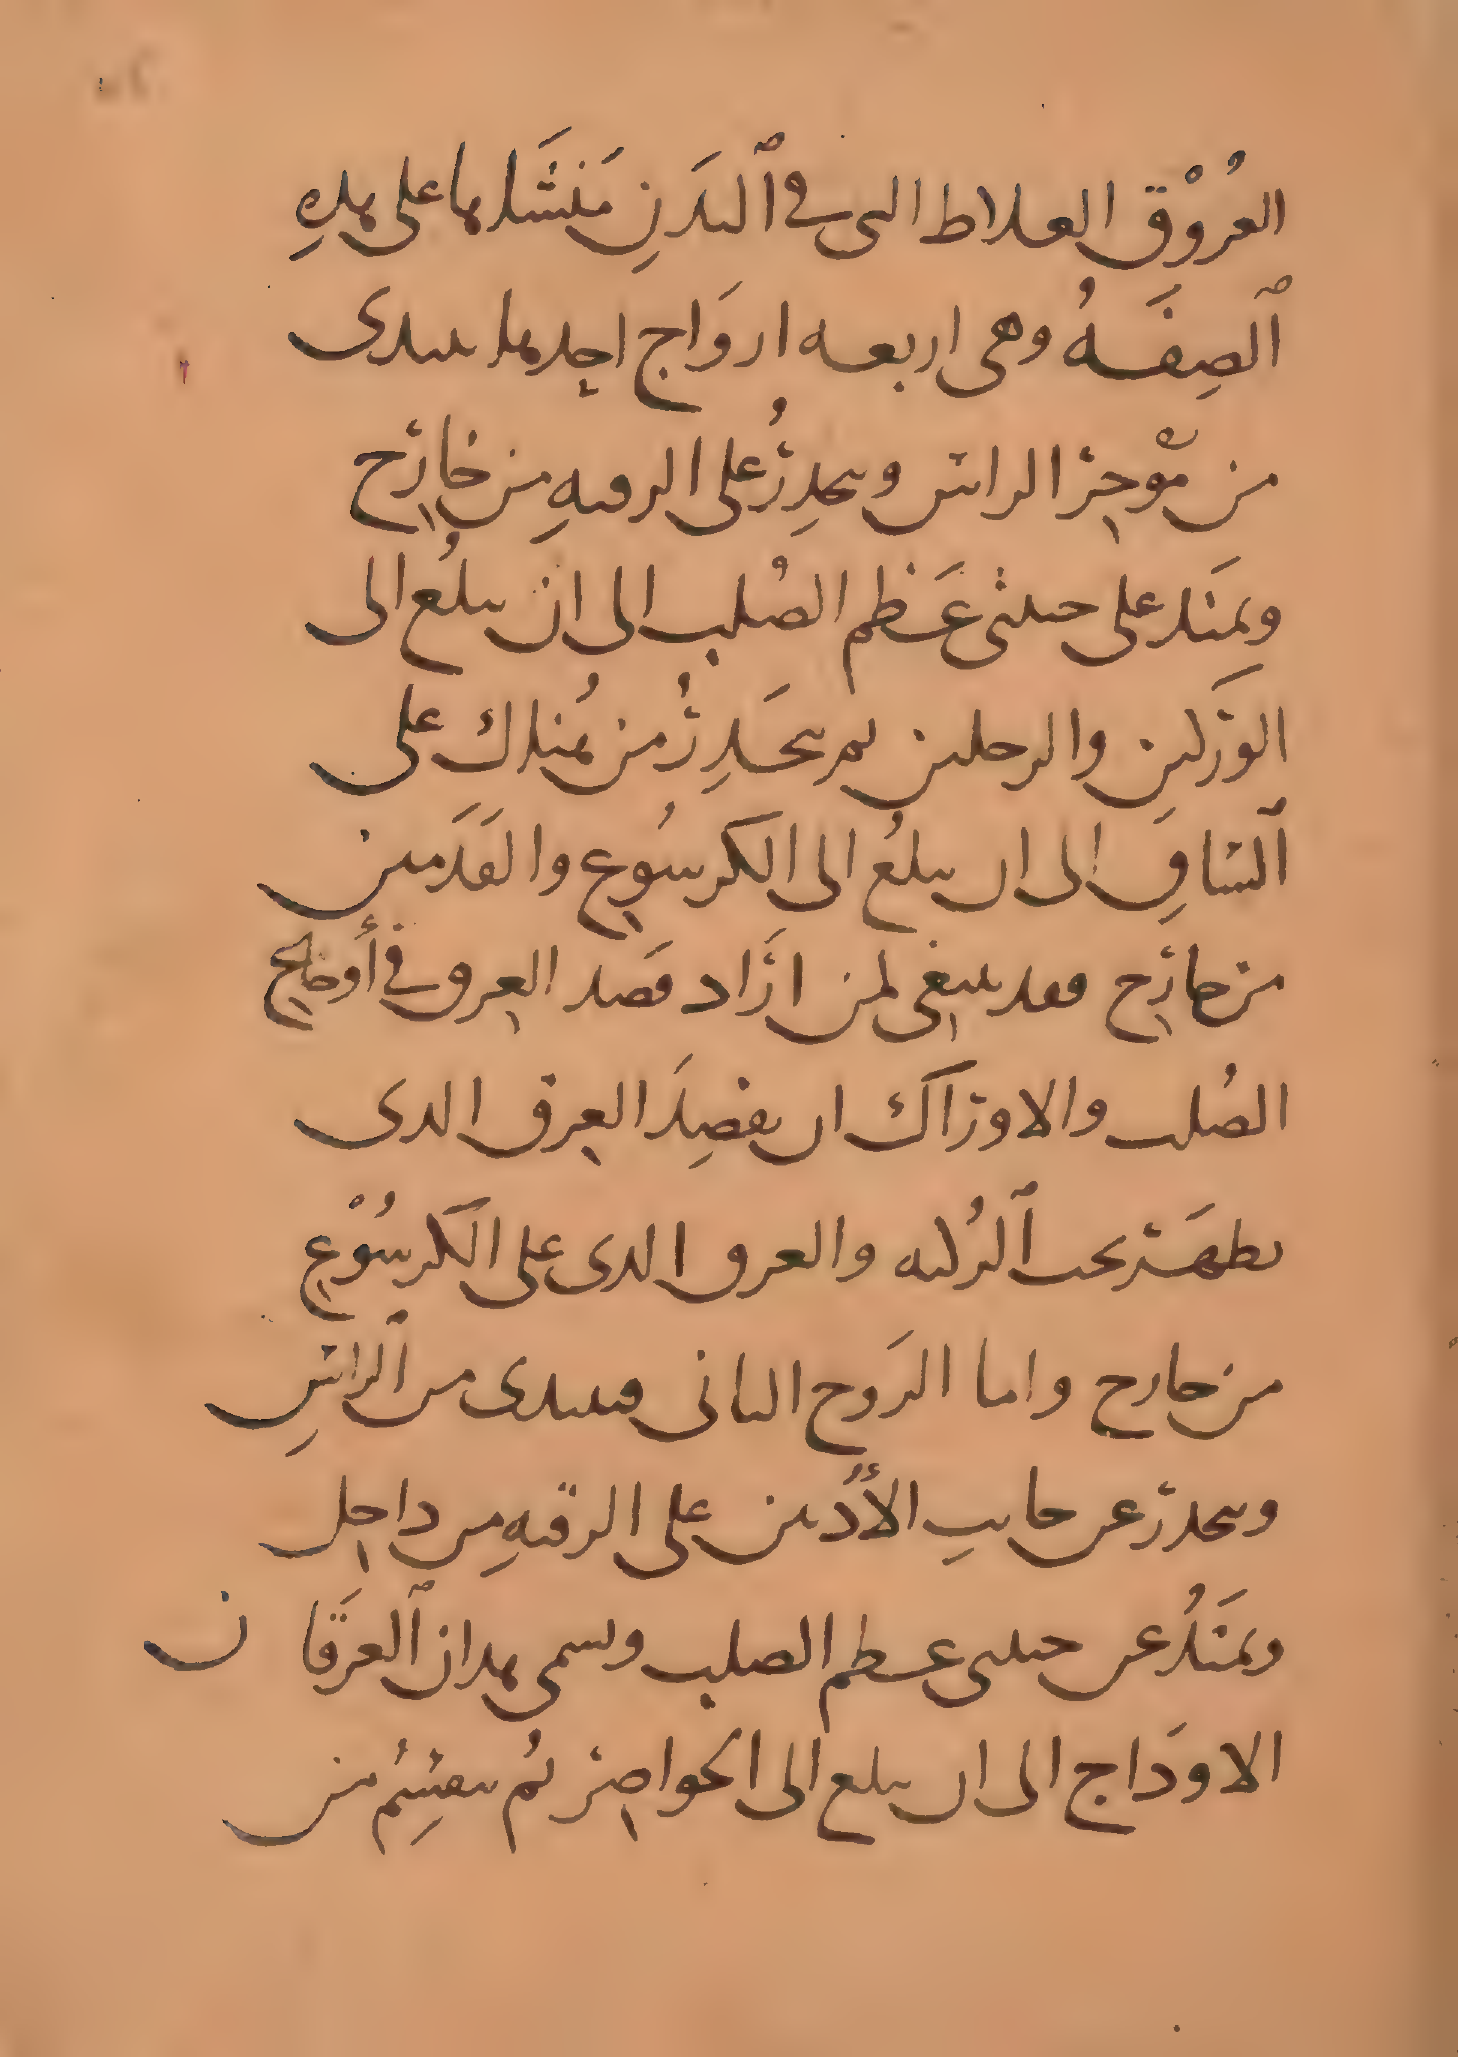 العُرُوْق الغلاظ التى فى ٱلبَدَنِ مَنشَاها على هذهِ
ٱلصِفَةُ وهى اربعه ازوَاج احدها يبتدى
من مؤخر الراس وينحدرُ على الرقبهِ من خارج
ويمتَد على جنبتى عَظم الصُلب الى ان يبلغُ الى
الوَركين والرجلين ثم ينحَدِرُ من هُناك على
ٱلسَاقِ الى ان يبلغُ الى الكرسُوع والقَدَمين
من خارج فقد ينبغى لمن ارَاد فَصد العروق فى أوجاع
الصُلب والاوراك ان يفصِدَ العرق الذى
يظهَر تحت ٱلرُكبه والعرق الذى على الكرسُوْع
من خارج واما الزَوج الثانى فيبتدى من ٱلراسِ
وينحدر عن جانبِ الأُذنين على الرقبهِ من داخل
ويمتَدُ عن جنبتى عظم الصلب ويسمى هذان ٱلعرقَان
الاودَاج الى ان يبلغ الى الخواصر ثُم ينقسِمُ من